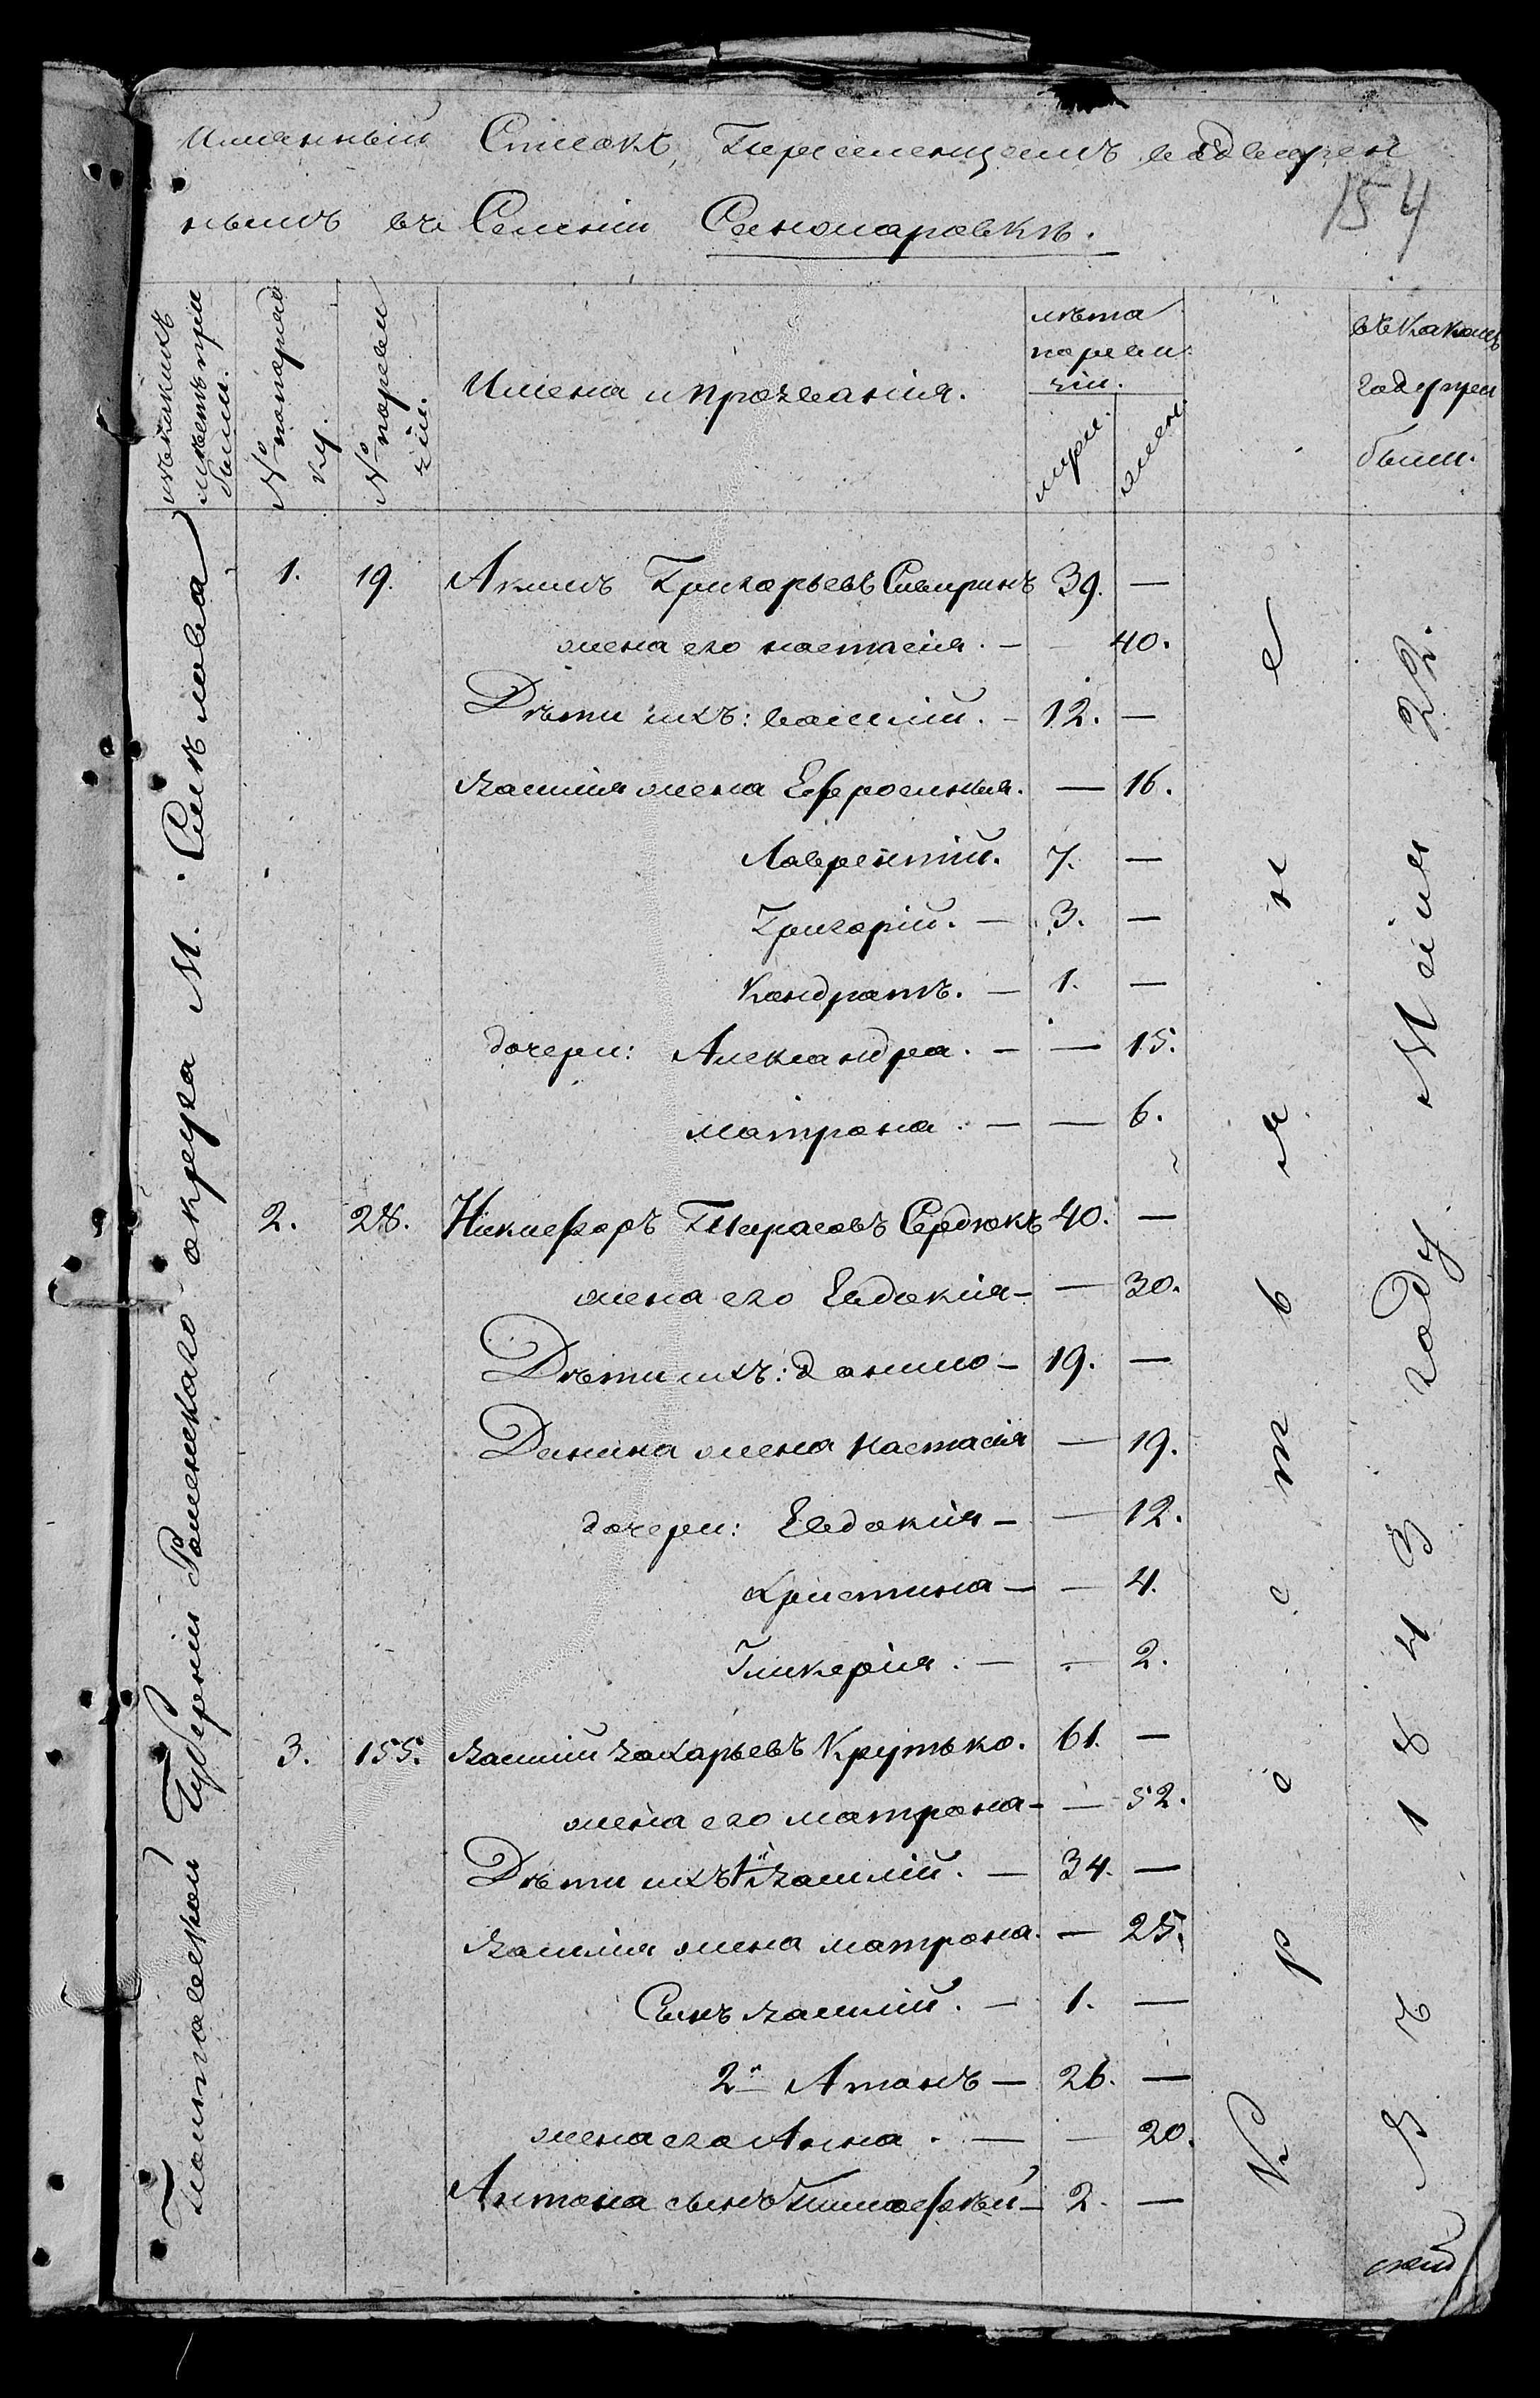 Именный Списокъ, Переселенцамъ водворен
нымъ въ Селеніи Сеномаровкѣ.
154
изъ какихъ
мѣстъ при
были.
№ попоряд
ку.
№ пореви
зіи.
Имена и прозванія.
лѣта
пореви
зіи.
муж.
жен.
въ какомъ
году при
были.
Полтавской Губерніи Роменскаго округа М.
1. 19. Акимъ Григорьевъ 39. —
жена его настасія. — — 40.
Дѣти ихъ: василій. — 12. —
Василія жена Ефросинія. — 16.
Лаврентій. 7. —
Григорій. — 3. —
Кондратъ. — 1. —
дочери: Александра. — — 15.
матрона. — — 6.
2. 28. Никифоръ Тарасовъ Сердюкъ 40. —
жена его Евдокія — — 30.
Дѣти ихъ: Данило — 19. —
Данила жена Настасія — 19.
дочери: Евдокия — — 12.
Христина — — 4.
Гликерія. — — 2.
3. 155. Василій Захарьевъ Крутько. 61. —
жена его матрона — — 52.
Дѣти ихъ 1й Василій. — 34. —
Василія жена матрона. — 25.
Сынъ Василій. — 1. —
2й Антонъ — 26. —
жена его Анна. — — 20.
Антона сынъ Тимофѣй — 2. —
Крестьяне
Въ 1843 году Маія 22.